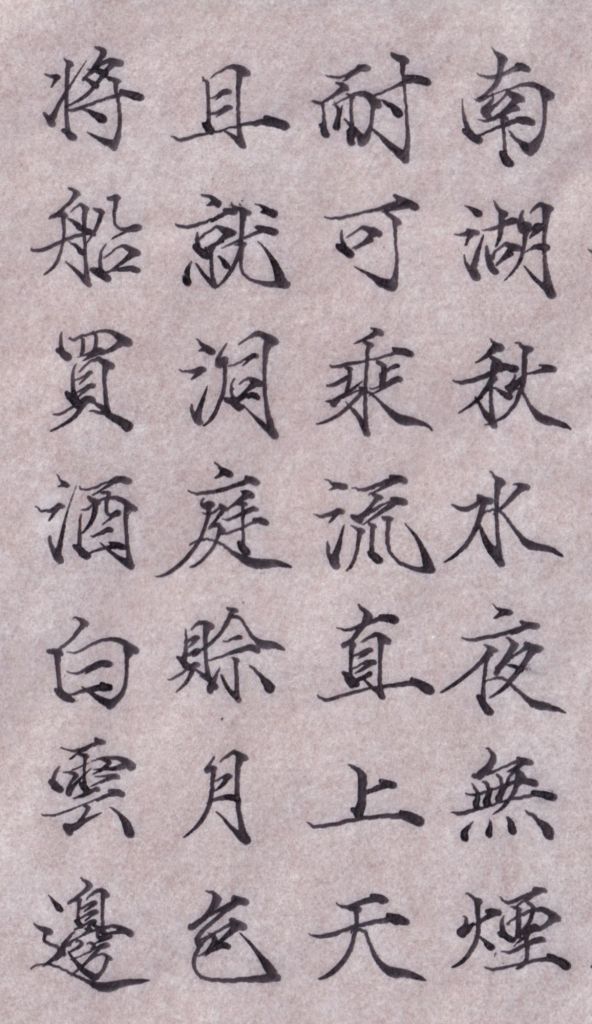 南湖秋水夜無煙
耐可乘流直上天
且就洞庭賒月色
將船買酒白雲邊